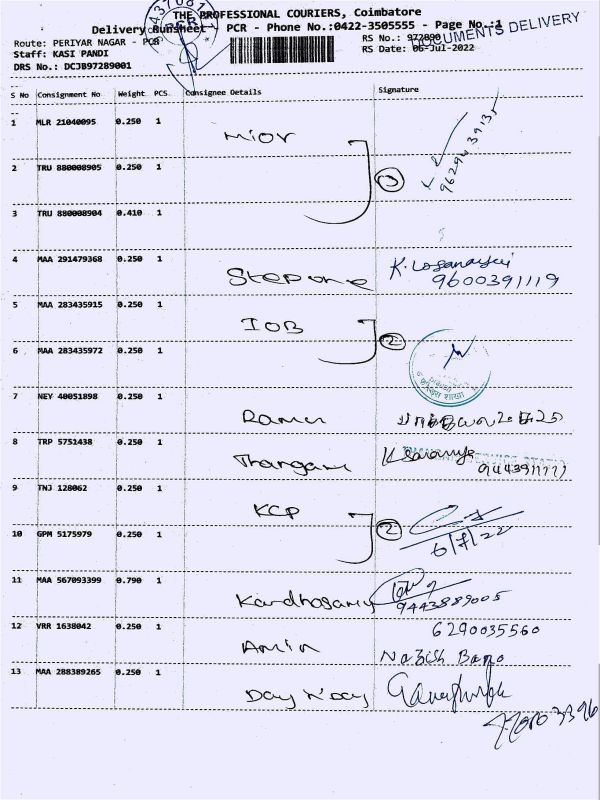 THE PROFESSIONAL COURIERS, Coimbatore
Delivery Runsheet - PCR - Phone No.:0422-3505555 - Page No.:1
DOCUMENTS DELIVERY
Route: PERIYAR NAGAR - PCB RS No.: 972890
Staff: KASI PANDI RS Date: 06-Jul-2022
DRS No.: DCJB97289001
S No Consignment No Weight PCS. Consignee Details Signature
1 MLR 21040095 0.250 1 Mior
2 TRU 880008905 0.250 1
3 TRU 880008904 0.410 1
4 MAA 291479368 0.250 1 Stepone
9600391119
5 MAA 283435915 0.250 1 IOB 2
6 MAA 283435972 0.250 1
7 NEY 40051898 0.250 1
8 TRP 5751438 0.250 1
9 TNJ 128062 0.250 1 KCP 2
10 GPM 5175979 0.250 1 6/7/22
11 MAA 567093399 0.790 1 9443889005
12 VRR 1638042 0.250 1 Amin 6290035560
Nazish Bano
13 MAA 288389265 0.250 1 Day N Day